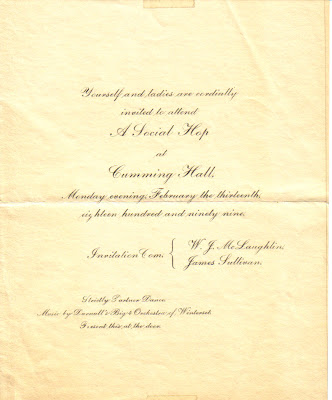 Yourself and ladies are cordially
invited to attend
A Social Hop
at
Cumming Hall,
Monday evening, February the thirteenth,
eighteen hundred and ninety nine.
Invitation Com. { W. J. McLaughlin,
James Sullivan.
Strictly Partner Dance
Music by Darnall's Big 4 Orchestra of Winterset.
Present this at the door.